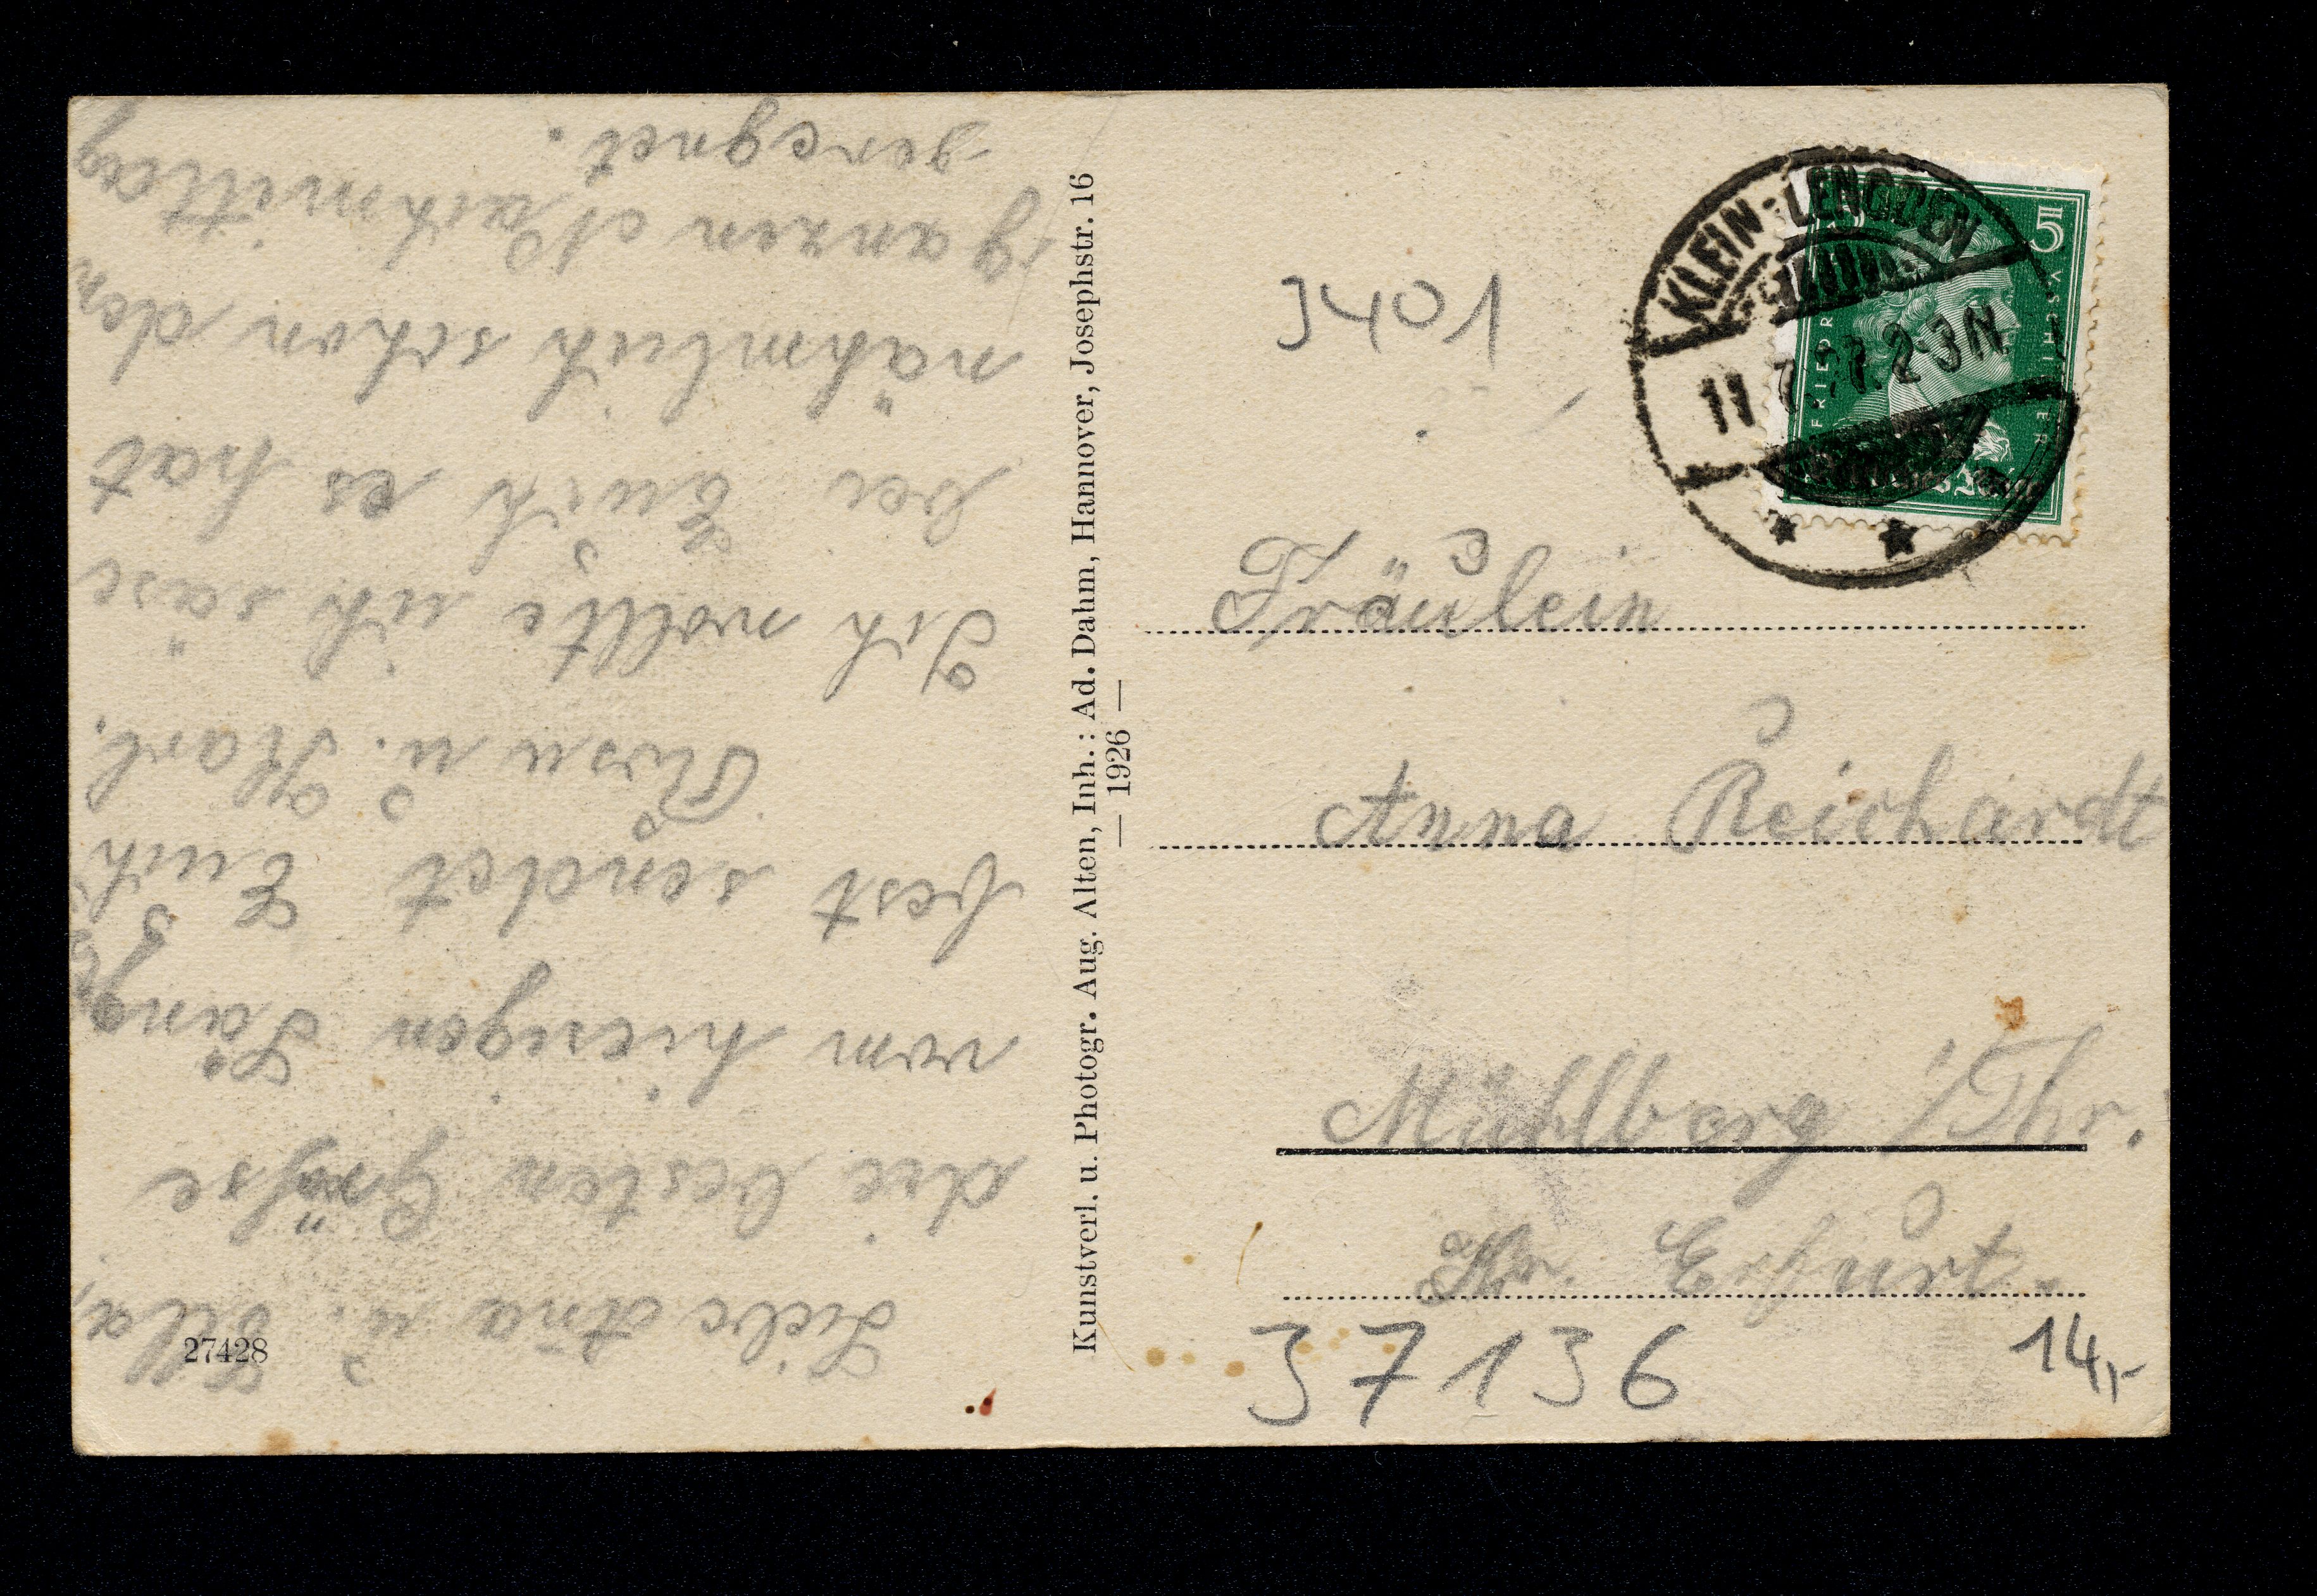 Liebe Anna u. Ella,
die besten Grüße
vom hiesigen Sänger
fest sendet Euch
u. Karl.
Ich wollte ich säse
bei Euch es hat
nähmlich schon den
ganzen Nachmittag
geregnet.
27428
Kunstverl. u. Photogr. Aug. Alten, Inh.: Ad. Dahm, Hannover, Josephstr. 16
— 1926 —
3401
KLEIN-LENGDEN
11 7. 2-3N
5
FRIEDRICH V. SCHILLER
Fräulein
Anna Reichardt
Mühlberg i/Thr.
Kr. Erfurt
37136
14,-